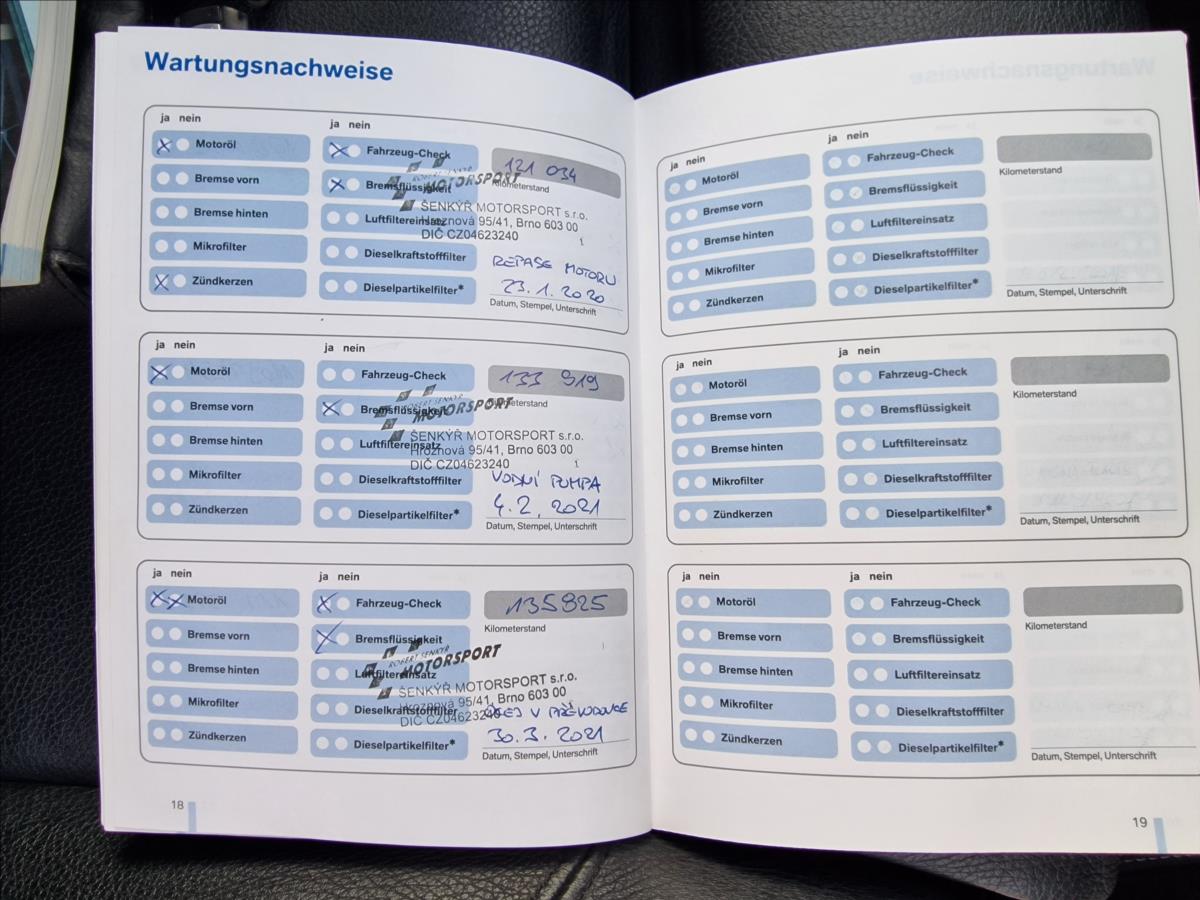 Wartungsnachweise
ja nein
ja nein
Motoröl
Fahrzeug-Check
121 034
Bremse vorn
Bremsflüssigkeit
Kilometerstand
MOTORSPORT
Bremse hinten
Luftfiltereinsatz
ŠENKÝŘ MOTORSPORT s.r.o.
Hroznová 95/41, Brno 603 00
DIČ CZ04623240
Mikrofilter
Dieselkraftstofffilter
REPASE MOTORU
Zündkerzen
Dieselpartikelfilter*
23. 1. 2020
Datum, Stempel, Unterschrift
ja nein
ja nein
Motoröl
Fahrzeug-Check
133 919
Bremse vorn
Bremsflüssigkeit
Kilometerstand
ROBERT SENKÝŘ
MOTORSPORT
Bremse hinten
Luftfiltereinsatz
ŠENKÝŘ MOTORSPORT s.r.o.
Hroznová 95/41, Brno 603 00
DIČ CZ04623240
Mikrofilter
Dieselkraftstofffilter
VODNÍ PUMPA
Zündkerzen
Dieselpartikelfilter*
4. 2. 2021
Datum, Stempel, Unterschrift
ja nein
ja nein
Motoröl
Fahrzeug-Check
135825
Bremse vorn
Bremsflüssigkeit
Kilometerstand
ROBERT SENKÝŘ
MOTORSPORT
Bremse hinten
Luftfiltereinsatz
ŠENKÝŘ MOTORSPORT s.r.o.
Hroznová 95/41, Brno 603 00
DIČ CZ04623240
Mikrofilter
Dieselkraftstofffilter
OLEJ V PŘEVODOVCE
Zündkerzen
Dieselpartikelfilter*
30. 3. 2021
Datum, Stempel, Unterschrift
18
ja nein
ja nein
Motoröl
Fahrzeug-Check
Kilometerstand
Bremse vorn
Bremsflüssigkeit
Bremse hinten
Luftfiltereinsatz
Mikrofilter
Dieselkraftstofffilter
Zündkerzen
Dieselpartikelfilter*
Datum, Stempel, Unterschrift
ja nein
ja nein
Motoröl
Fahrzeug-Check
Kilometerstand
Bremse vorn
Bremsflüssigkeit
Bremse hinten
Luftfiltereinsatz
Mikrofilter
Dieselkraftstofffilter
Zündkerzen
Dieselpartikelfilter*
Datum, Stempel, Unterschrift
ja nein
ja nein
Motoröl
Fahrzeug-Check
Kilometerstand
Bremse vorn
Bremsflüssigkeit
Bremse hinten
Luftfiltereinsatz
Mikrofilter
Dieselkraftstofffilter
Zündkerzen
Dieselpartikelfilter*
Datum, Stempel, Unterschrift
19